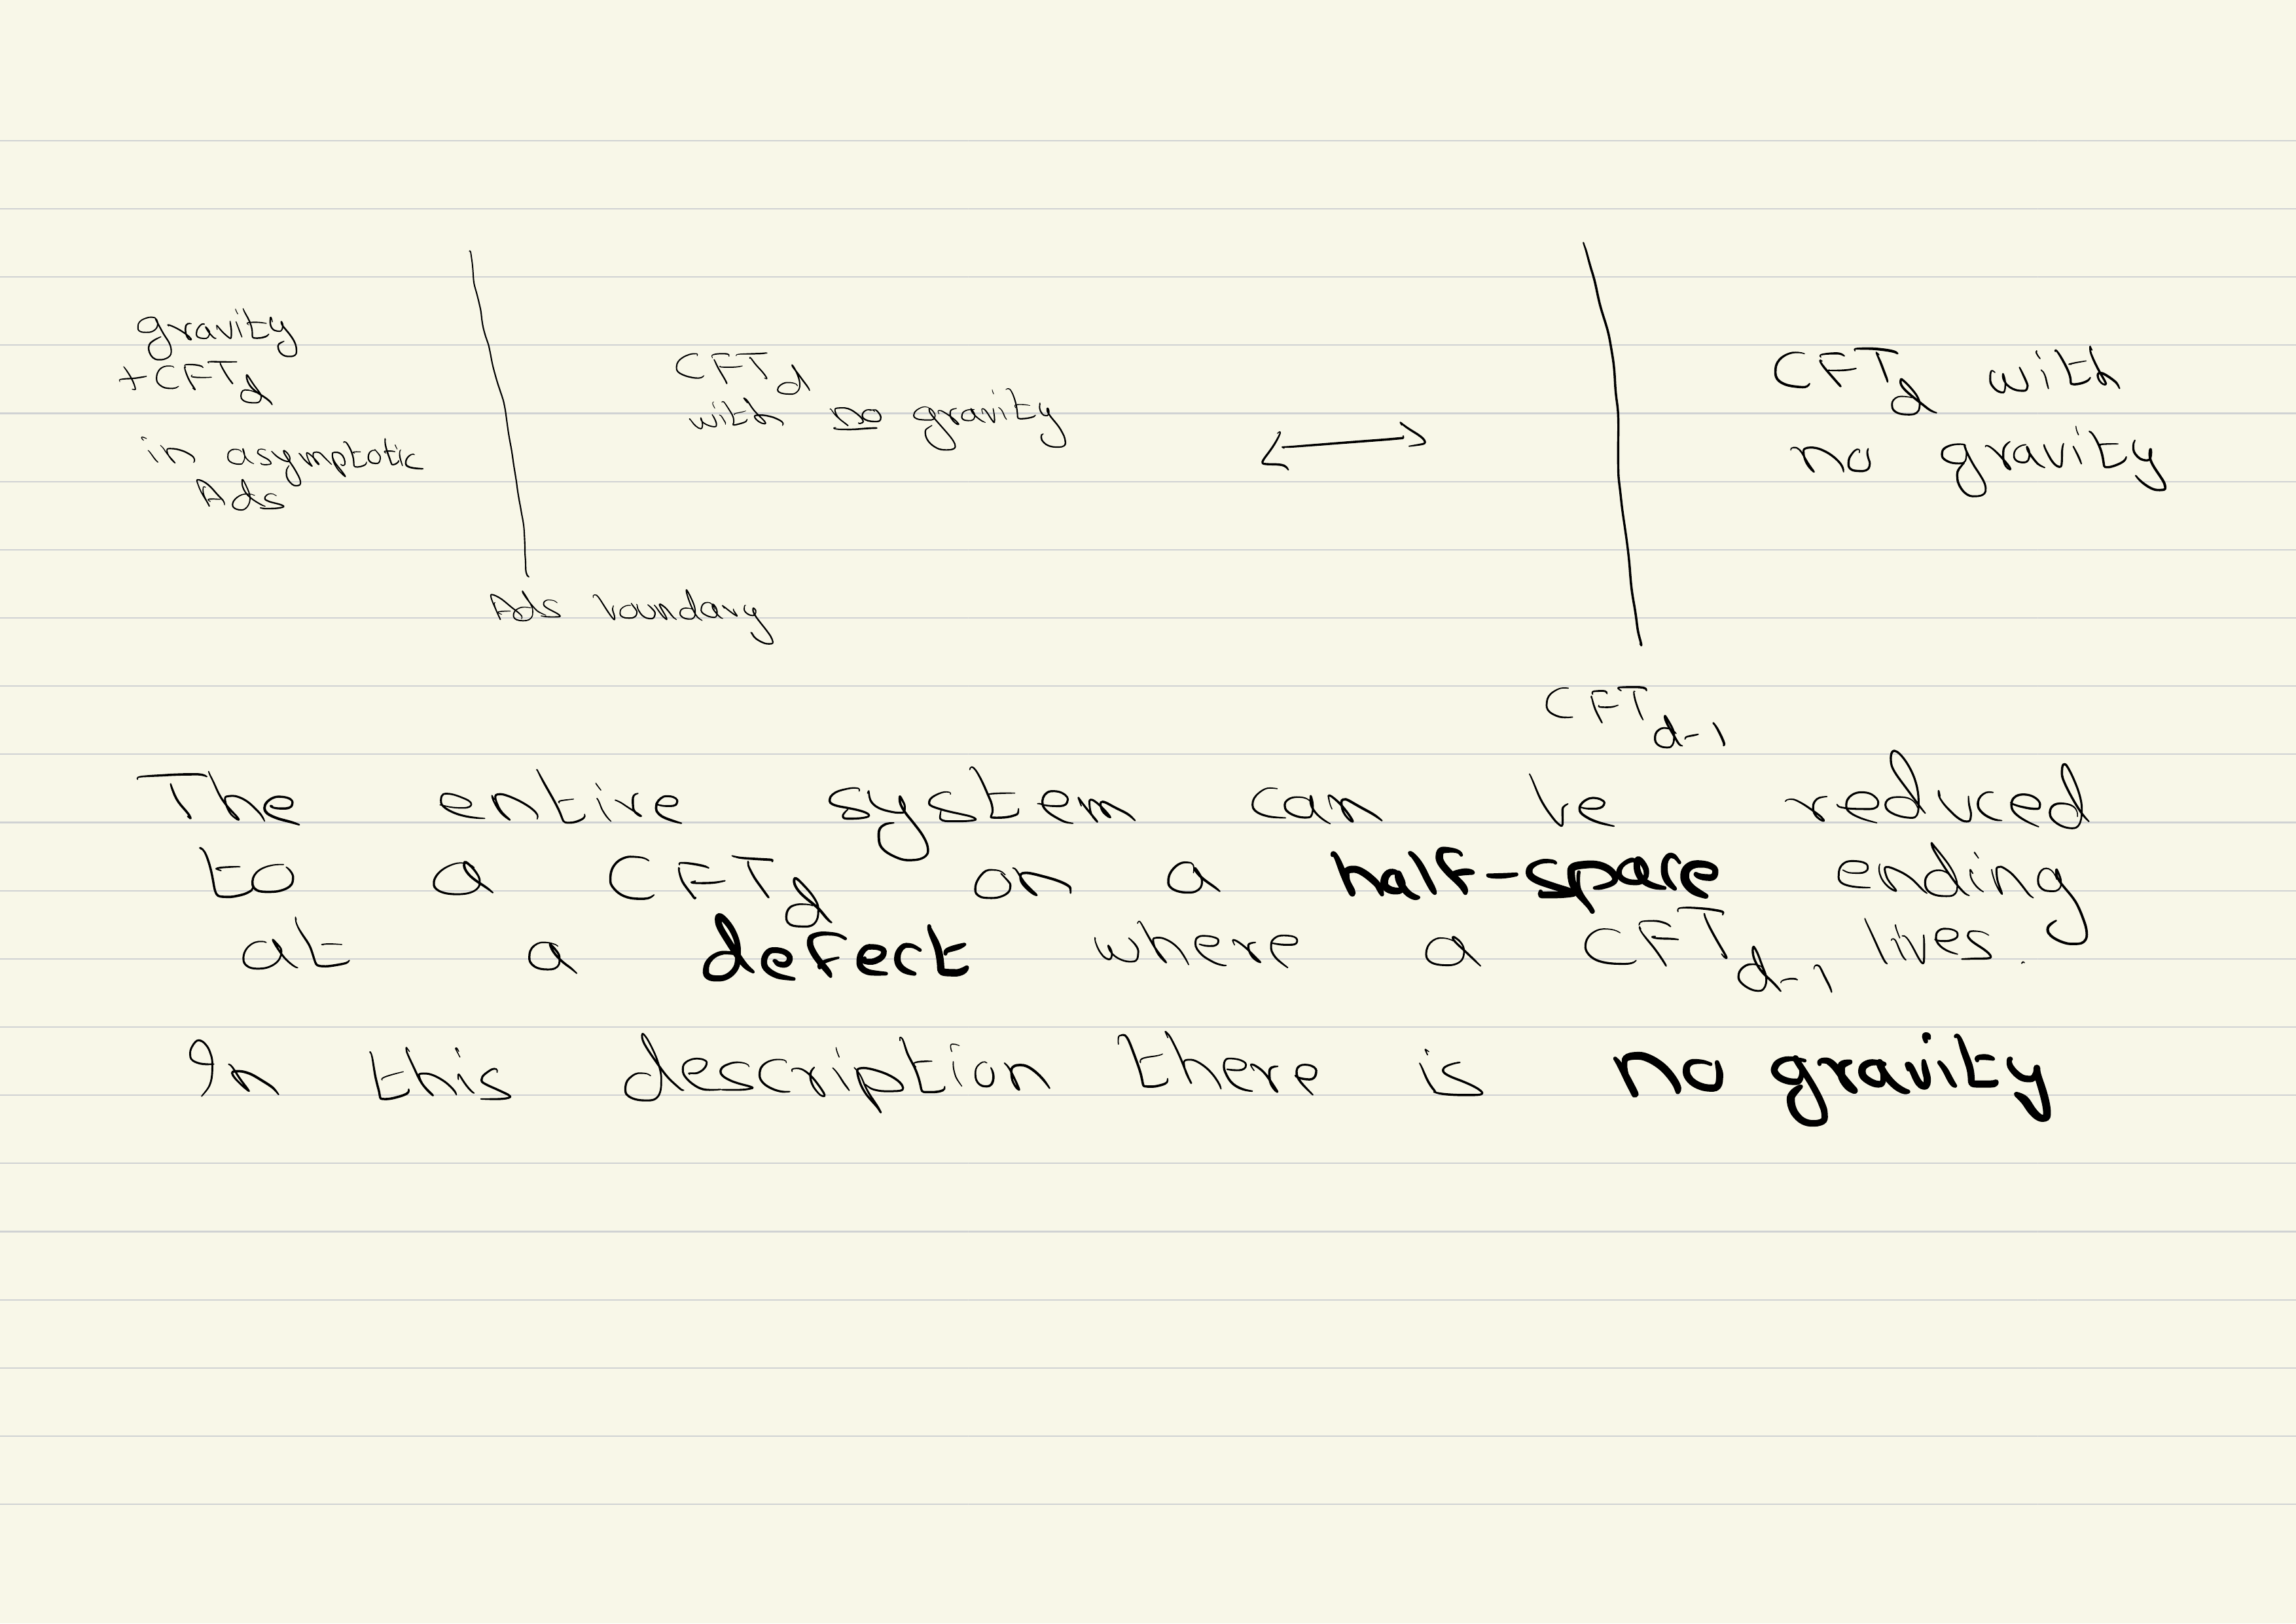 gravity
+CFT_d
in asymptotic
AdS
AdS boundary
CFT_d
with no gravity
CFT_d with
no gravity
CFT_{d-1}
The entire system can be reduced
to a CFT_d on a half-space ending
at a defect where a CFT_{d-1} lives.
In this description there is no gravity